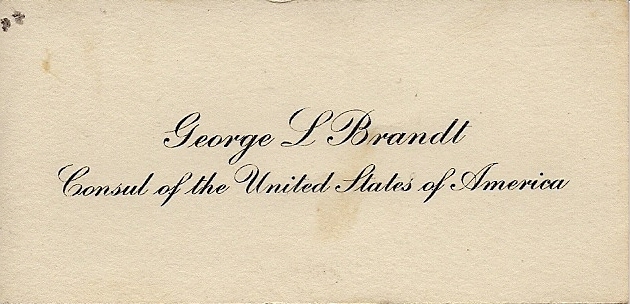 George L Brandt
Consul of the United States of America